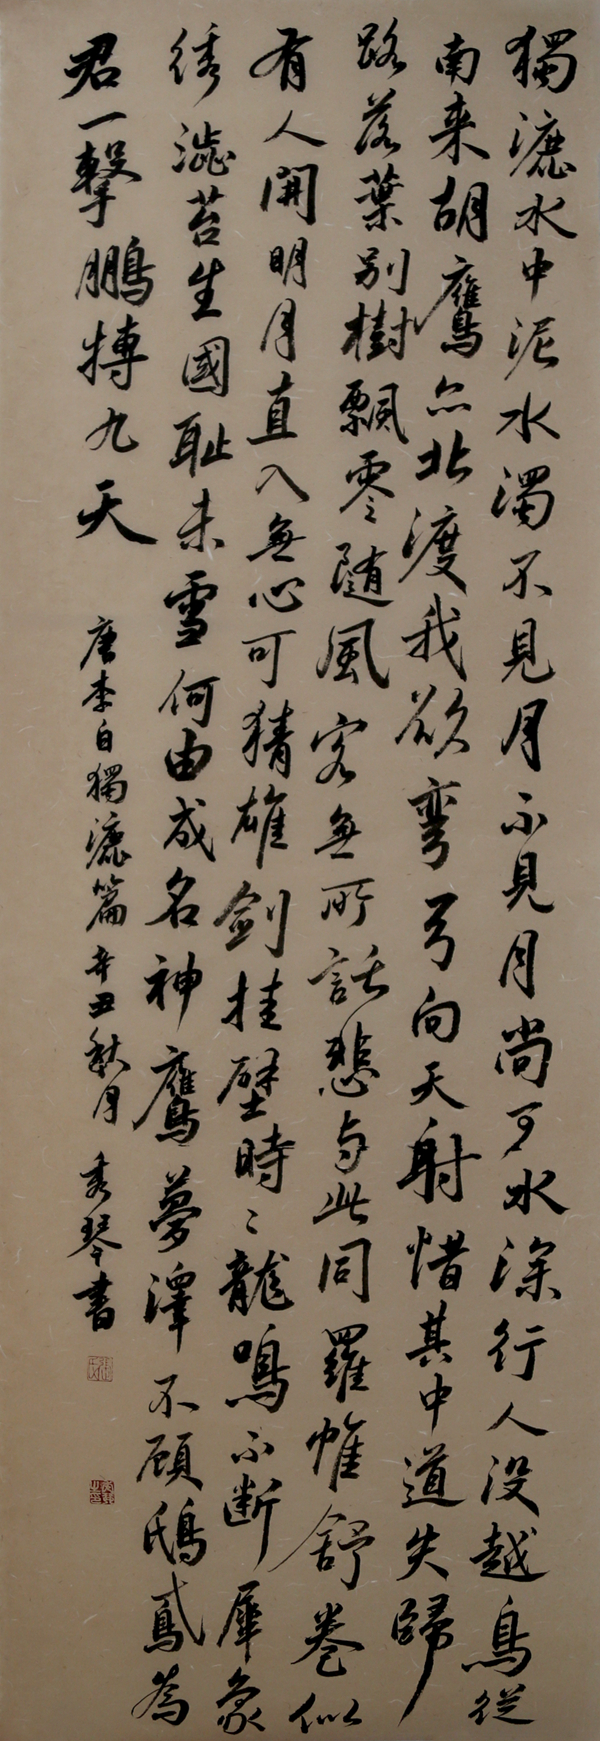 獨漉水中泥水濁不見月不見月尚可水深行人没越鳥從
南来胡鷹亦北渡我欲彎弓向天射惜其中道失歸
路落葉别樹飄零随風客無所託悲与此同羅帷舒卷似
有人開明月直入無心可猜雄劍挂壁時〻龍鳴不断犀象
綉澁苔生國耻未雪何由成名神鷹夢澤不顧鴟鳶為
君一擊鵬摶九天
唐李白獨漉篇辛丑秋月秀琴書